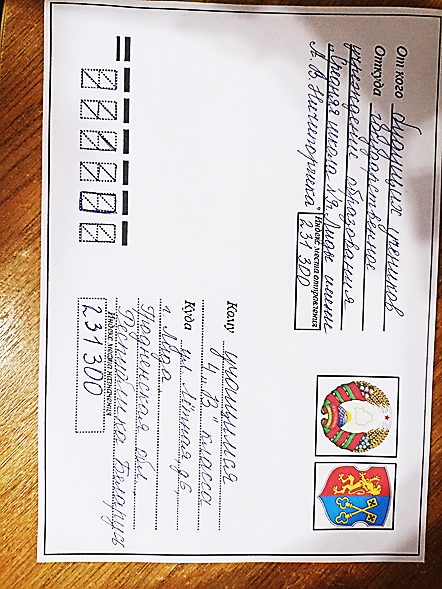 От кого бучащих учеников
Откуда государственное
учреждение образования
"Средняя школа №3 г. Лиды имени
А. В. Ничипорчика"
Индекс места отправления
231300
Кому учащимся
4 "В" класса
Куда ул. Мённая, д 6,
г. Лида
Гродненская обл.
Республика Беларусь
Индекс места назначения
231300